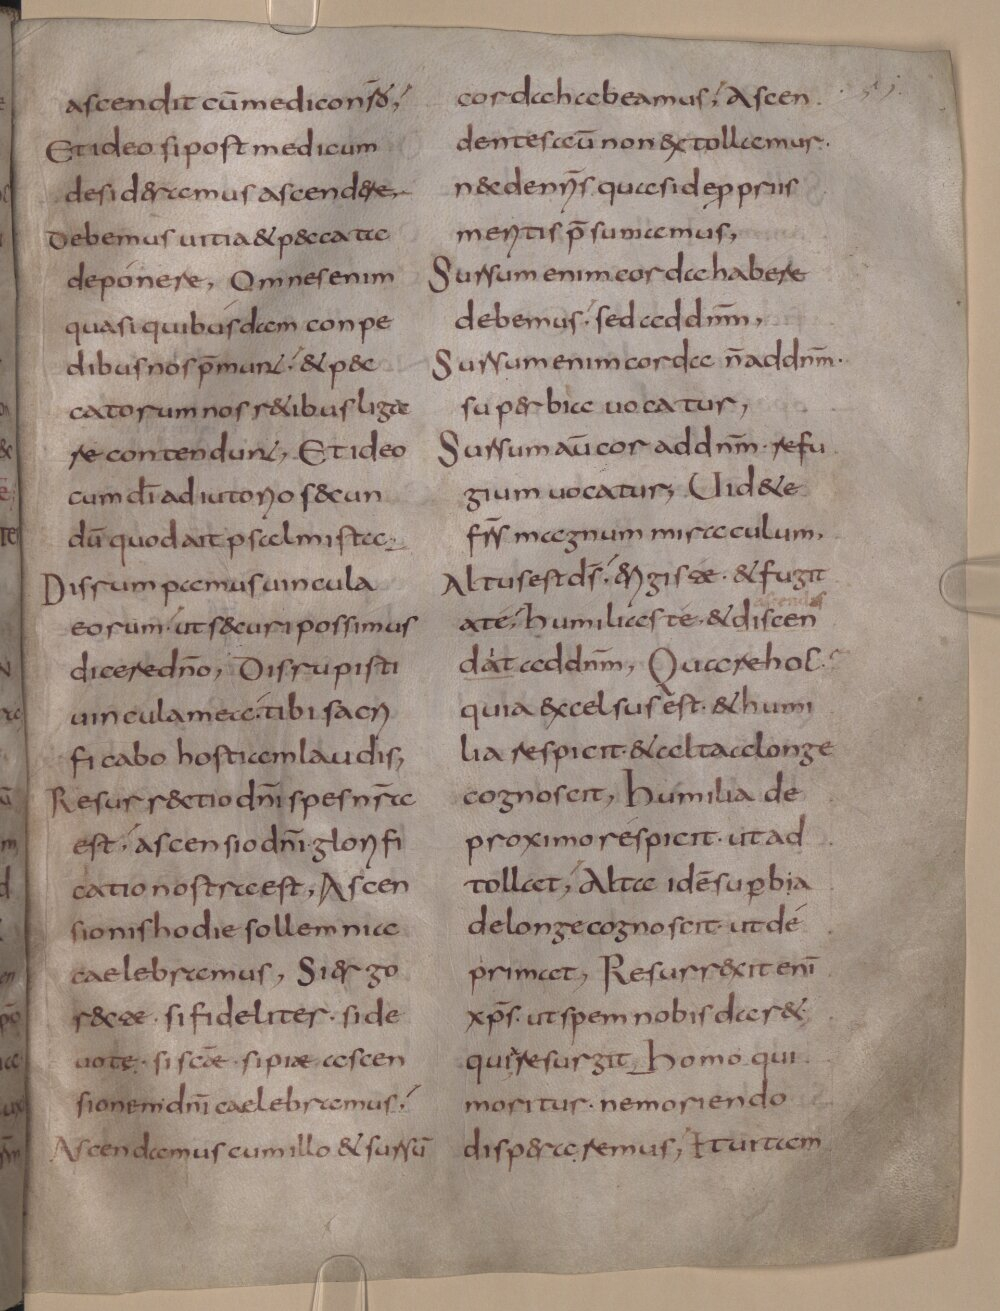 ascendit cū medico nr̄o;
Et ideo si post medicum
desideramus ascendere,
Debemus uitia & peccata
deponere, Omnes enim
quasi quibusdam conpe
dibus nos p̄munt; & pec
catorum nos retibus liga
re contendunt, Et ideo
cum dī adiutorio secun
dū quod ait psalmista.
Disrumpamus uincula
eorum; ut securi possimus
dicere dn̄o, Disrupisti
uincula mea. tibi sacri
ficabo hostiam laudis,
Resurrectio dn̄i spes nr̄a
est; ascensio dn̄i. glorifi
catio nostra est, Ascen
sionis hodie sollemnia
caelebramus, Si ergo
recte. si fideliter. si de
uote. si sc̄ae. si piae ascen
sionem dn̄i caelebramus;
Ascendamus cum illo & sursū
corda habeamus; Ascen
dentes aū non extollamur.
nec de nr̄is quasi de propriis
meritis p̄sumamus,
Sursum enim corda habere
debemus; sed ad dnm̄,
Sursum enim corda n̄ ad dnm̄.
superbia uocatur,
Sursum aū cor ad dnm̄. refu
gium uocatur, Uidete
fr̄s magnum miraculum,
Altus est ds̄; erigis te. & fugit
a te; humilias te. & discen
dat ad dnm̄, Quare hoc.
quia excelsus est. & humi
lia respicit. & alta a longe
cognoscit, Humilia de
proximo respicit. ut ad
tollat; Alta idē superbia
de longe cognoscit. ut de
primat, Resurrexit enī
xp̄s. ut spem nobis daret
qui resurgit, homo qui
moritur. ne moriendo
disperaremus, & uitam